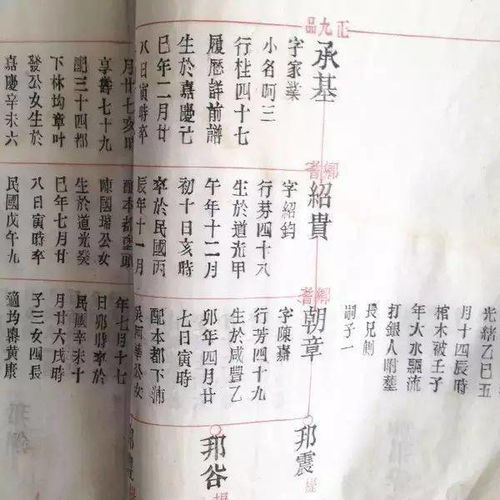 正九品
承基
字家業
小名阿三
行桂四十七
履歷詳前譜
生於嘉慶己
巳年二月廿
八日寅時卒
月廿七亥時
享壽七十九
配三十四都
下林均章叶
發公女生於
嘉慶辛未六
鄉耆
紹貴
字紹鈞
行芬四十八
生於道光甲
午年十二月
初十日亥時
卒於民國丙
辰年十一月
配本都
陳國瑞公女
生於道光癸
巳年七月廿
八日寅時卒
民國戊午九
光緒乙巳五
月十四辰時
棺木破壬子
年大水飄流
打銀人明墓
長兄側
嗣子一
鄉耆
朝章
字陳嘉
行芳四十九
生於咸豐乙
卯年四月廿
七日寅時
配本都下浦
公女
年七月十七
日卯時卒於
民國辛未十
月廿六戌時
子三女四長
適均壽黃康
邦震
邦谷